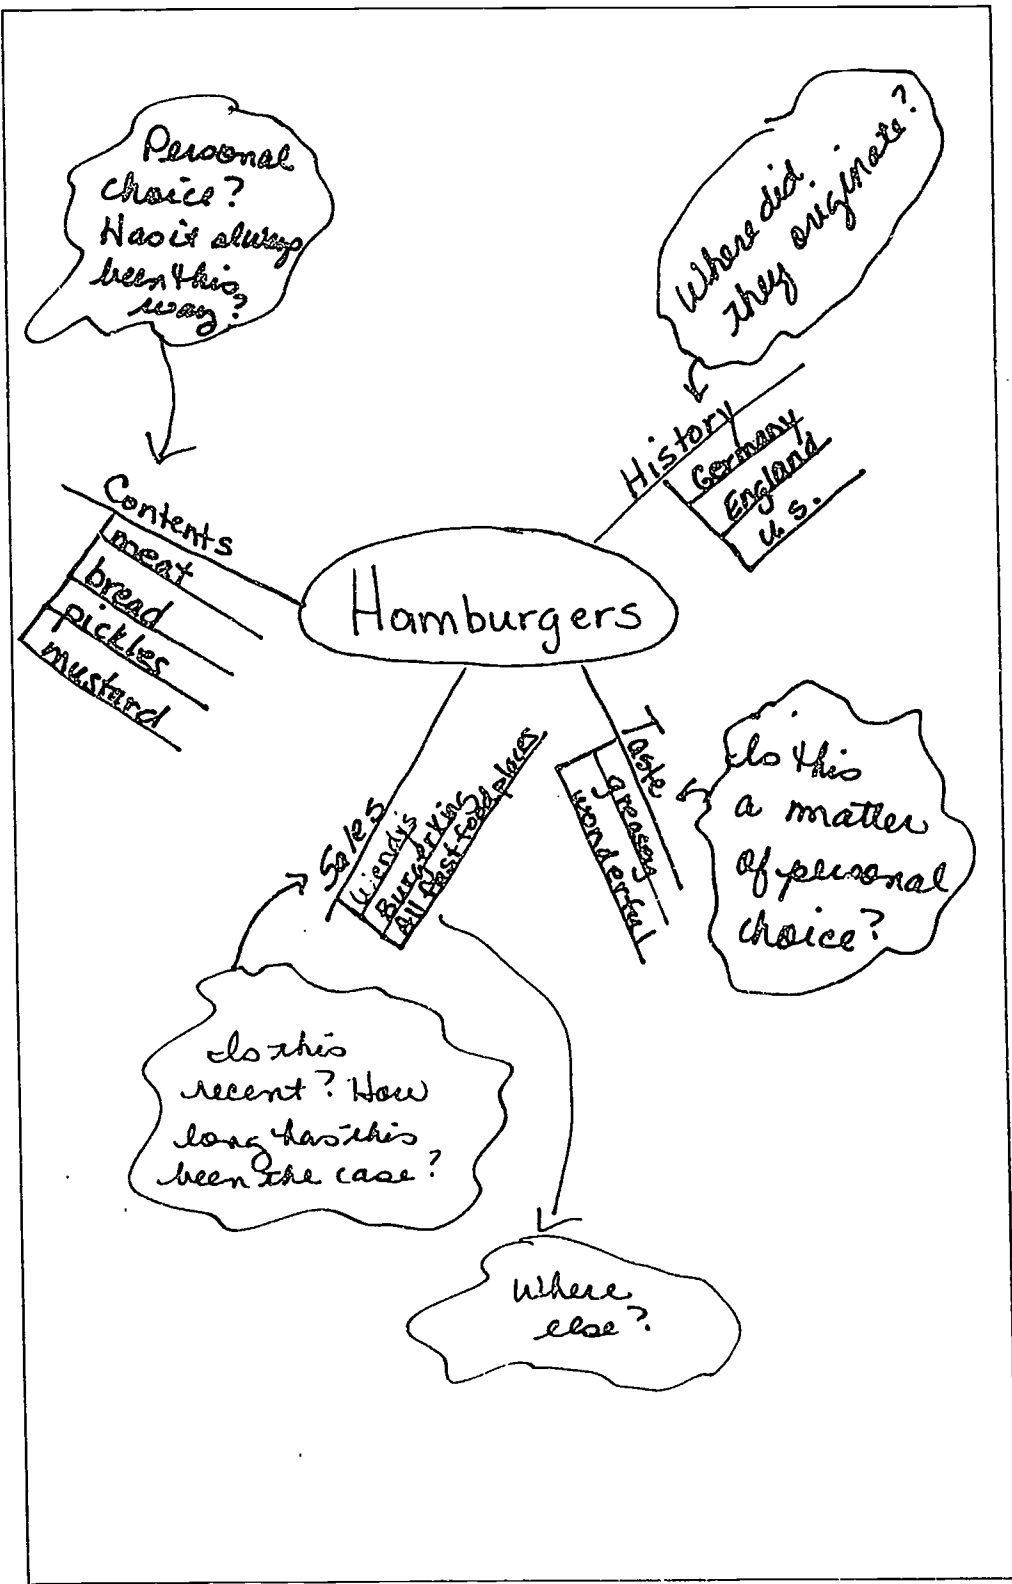 Personal
choice?
Has it always
been this
way?
Where did
they originate?
History
Germany
England
U.S.
Contents
meat
bread
pickles
mustard
Hamburgers
Sales
Wendy's
Burger King
All fast food places
Taste
greasey
wonderful
Is this
a matter
of personal
choice?
Is this
recent? How
long has this
been the case?
Where
else?